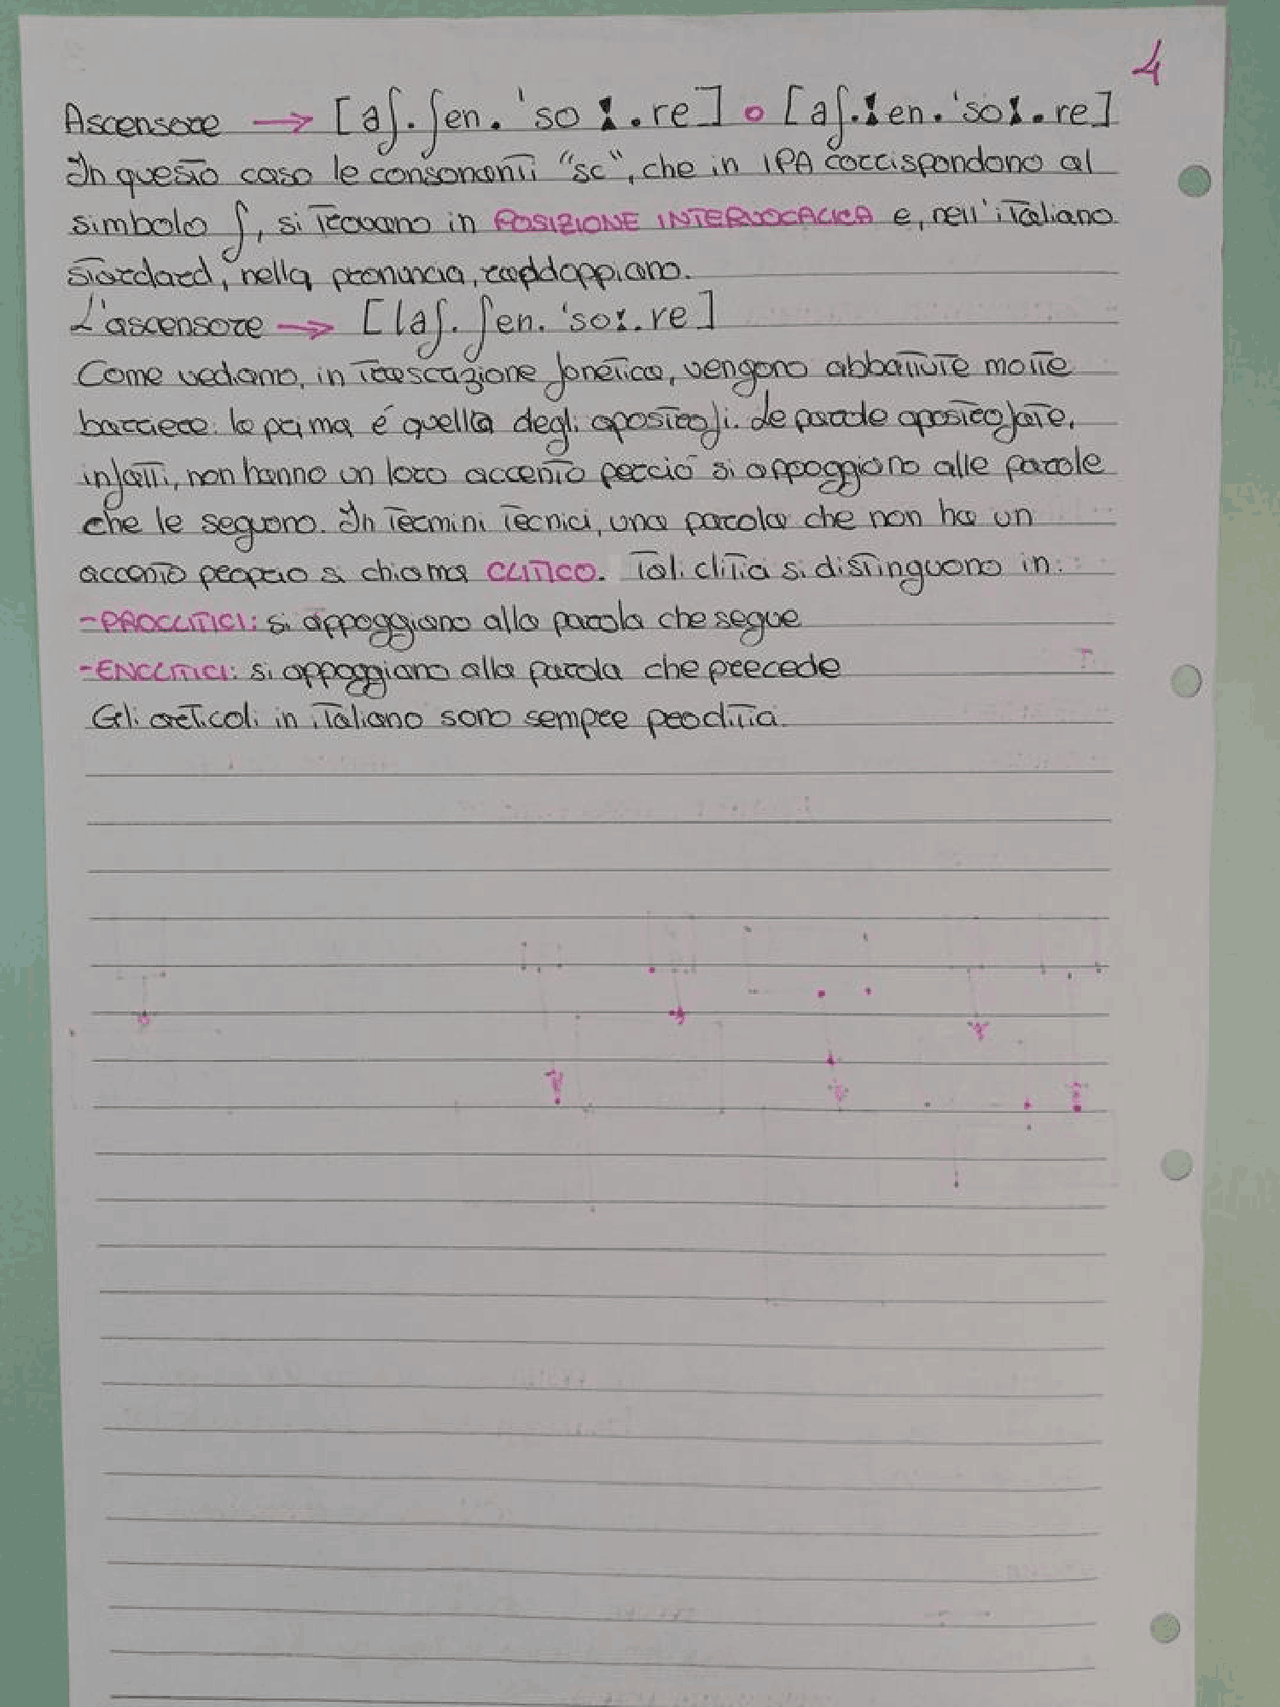 4
Ascensore → [aʃ.ʃen.ˈsoː.re] o [aʃ.ːen.ˈsoː.re]
In questo caso le consonanti "sc", che in IPA corrispondono al
simbolo ʃ, si trovano in POSIZIONE INTERVOCALICA e, nell'italiano
standard, nella pronuncia, raddoppiano.
L'ascensore → [laʃ.ʃen.ˈsoː.re]
Come vediamo, in trascrizione fonetica, vengono abbattute molte
barriere: la prima é quella degli apostrofi. Le parole apostrofate,
infatti, non hanno un loro accento perciò si appoggiano alle parole
che le seguono. In termini tecnici, una parola che non ha un
accento proprio si chiama CLITICO. Tali clitici si distinguono in:
-PROCLITICI: si appoggiano alla parola che segue
-ENCLITICI: si appoggiano alla parola che precede
Gli articoli in italiano sono sempre proclitici.